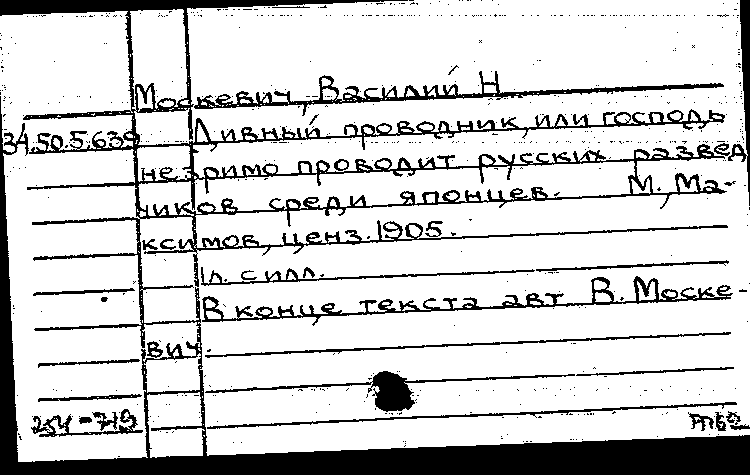 Москевич, Василий Н
34.50.5.639 Дивный проводник, или господь
незримо проводит русских развед
чиков среди японцев. М., Ма-
ксимов, ценз. 1905.
1л. с илл.
В конце текста авт В. Моске-
вич.
254-719